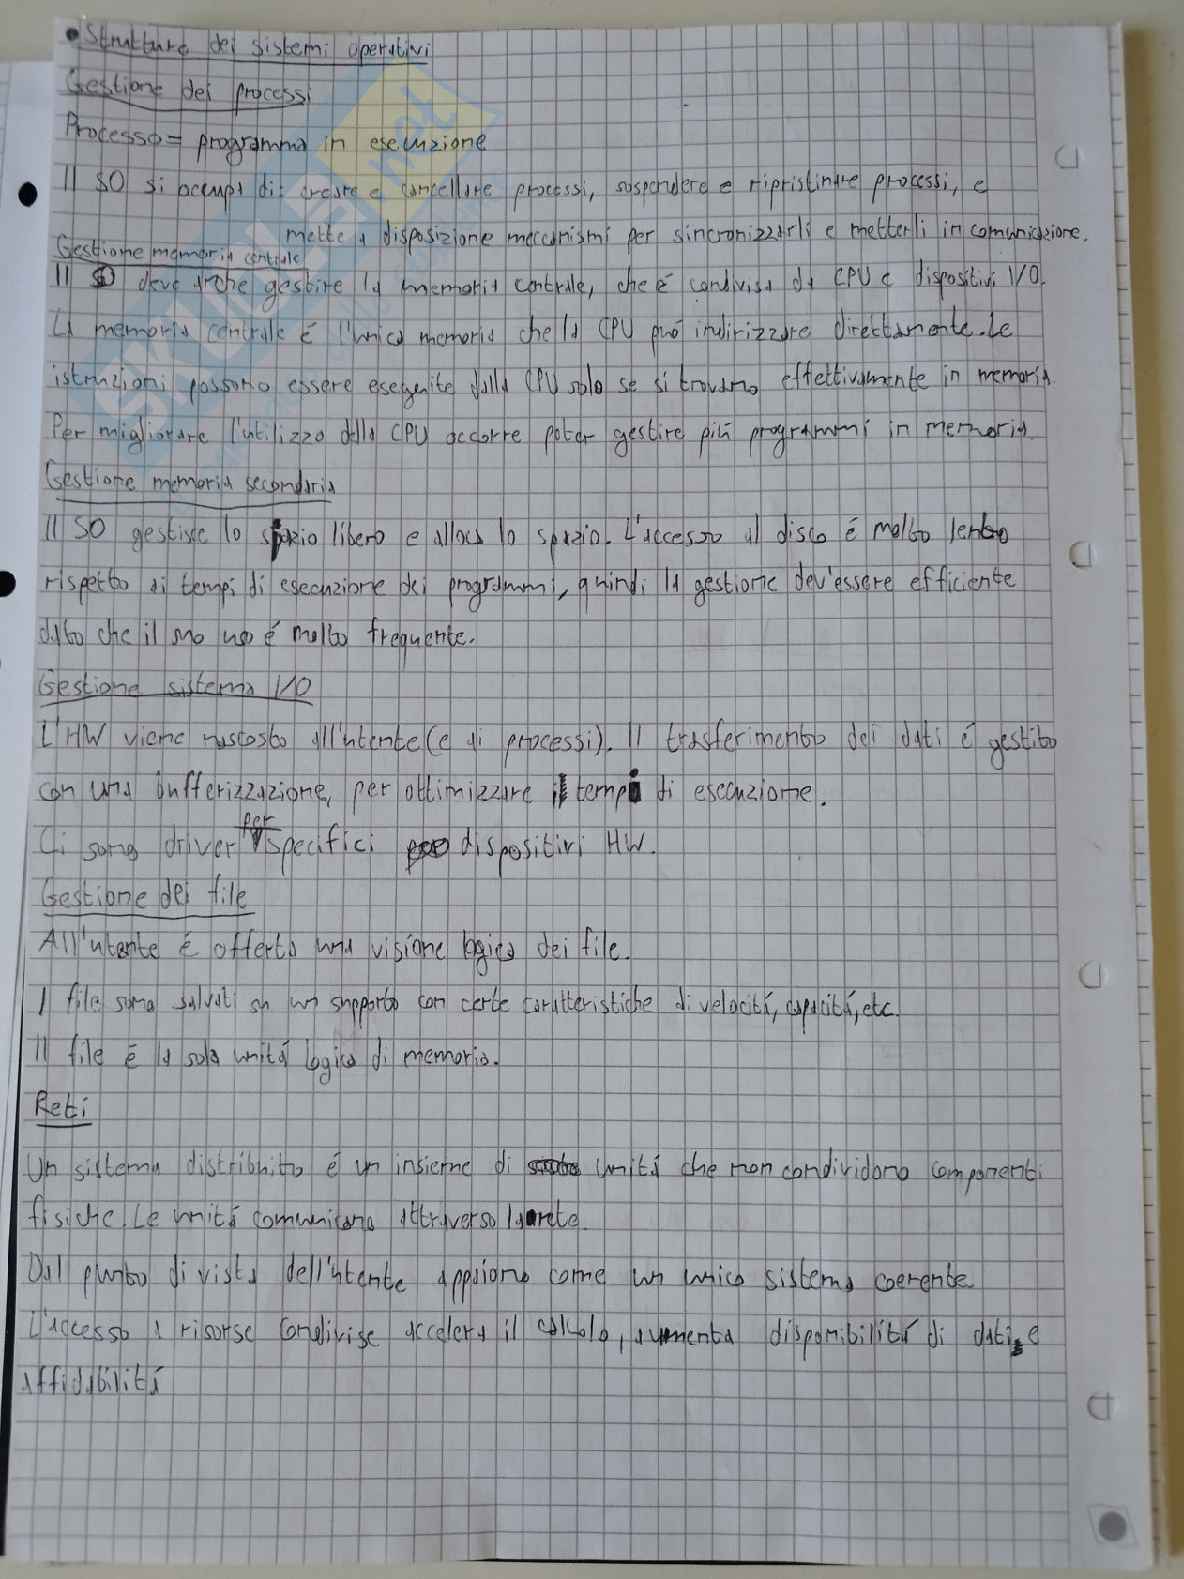 • Strutture dei sistemi operativi
Gestione dei processi
Processo = programma in esecuzione
Il SO si occupa di: creare e cancellare processi, sospendere e ripristinare processi, e
mette a disposizione meccanismi per sincronizzarli e metterli in comunicazione.
Gestione memoria centrale
Il SO deve anche gestire la memoria centrale, che é condivisa da CPU e dispositivi I/O.
La memoria centrale é l'unica memoria che la CPU puó indirizzare direttamente. Le
istruzioni possono essere eseguite dalla CPU solo se si trovano effettivamente in memoria
Per migliorare l'utilizzo della CPU occorre poter gestire piú programmi in memoria
Gestione memoria secondaria
Il SO gestisce lo spazio libero e alloca lo spazio. L'accesso al disco é molto lento
rispetto ai tempi di esecuzione dei programmi, quindi la gestione dev'essere efficiente
dato che il suo uso é molto frequente.
Gestione sistema I/O
L'HW viene nascosto all'utente (e ai processi). Il trasferimento dei dati é gestito
con una bufferizzazione, per ottimizzare i tempi di esecuzione.
Ci sono driver per specifici dispositivi HW.
Gestione dei file
All'utente é offerta una visione logica dei file.
I file sono salvati su un supporto con certe caratteristiche di velocitá, capacitá, etc.
Il file é la sola unitá logica di memoria.
Reti
Un sistema distribuito é un insieme di unitá che non condividono componenti
fisiche. Le unitá comunicano attraverso la rete.
Dal punto di vista dell'utente appaiono come un unico sistema coerente
L'accesso a risorse condivise accelera il calcolo, aumenta disponibilitá di dati e
affidabilitá
SKUOLA.net